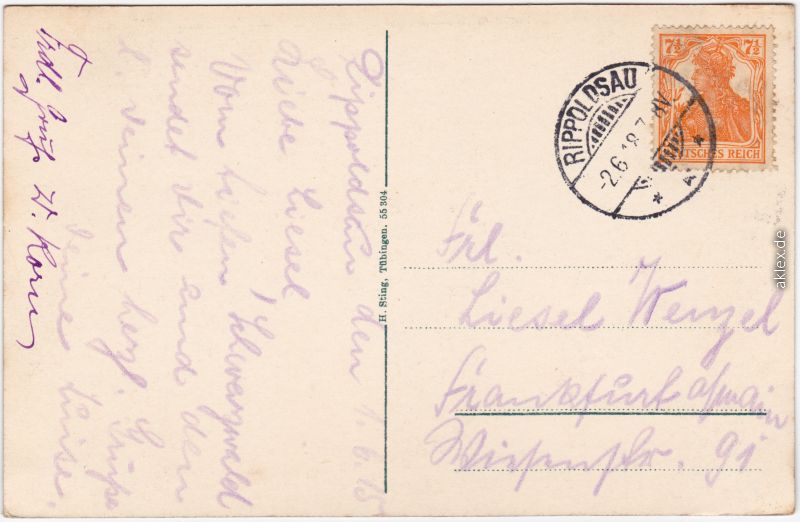 Rippoldsau den 1. 6. 18
Liebe Liesel
Vom tiefen Schwarzwald
sendet dir und den
l. deinen herzl. Grüße
deine Luise.
Frdl. Gruß W. Korn
H. Sting, Tübingen. 55 304
7½ 7½
DEUTSCHES REICH
RIPPOLDSAU
-2.6.18.7-8V
Frl.
Liesel Wenzel
Frankfurt a/main
Wiesenstr. 91
aklex.de